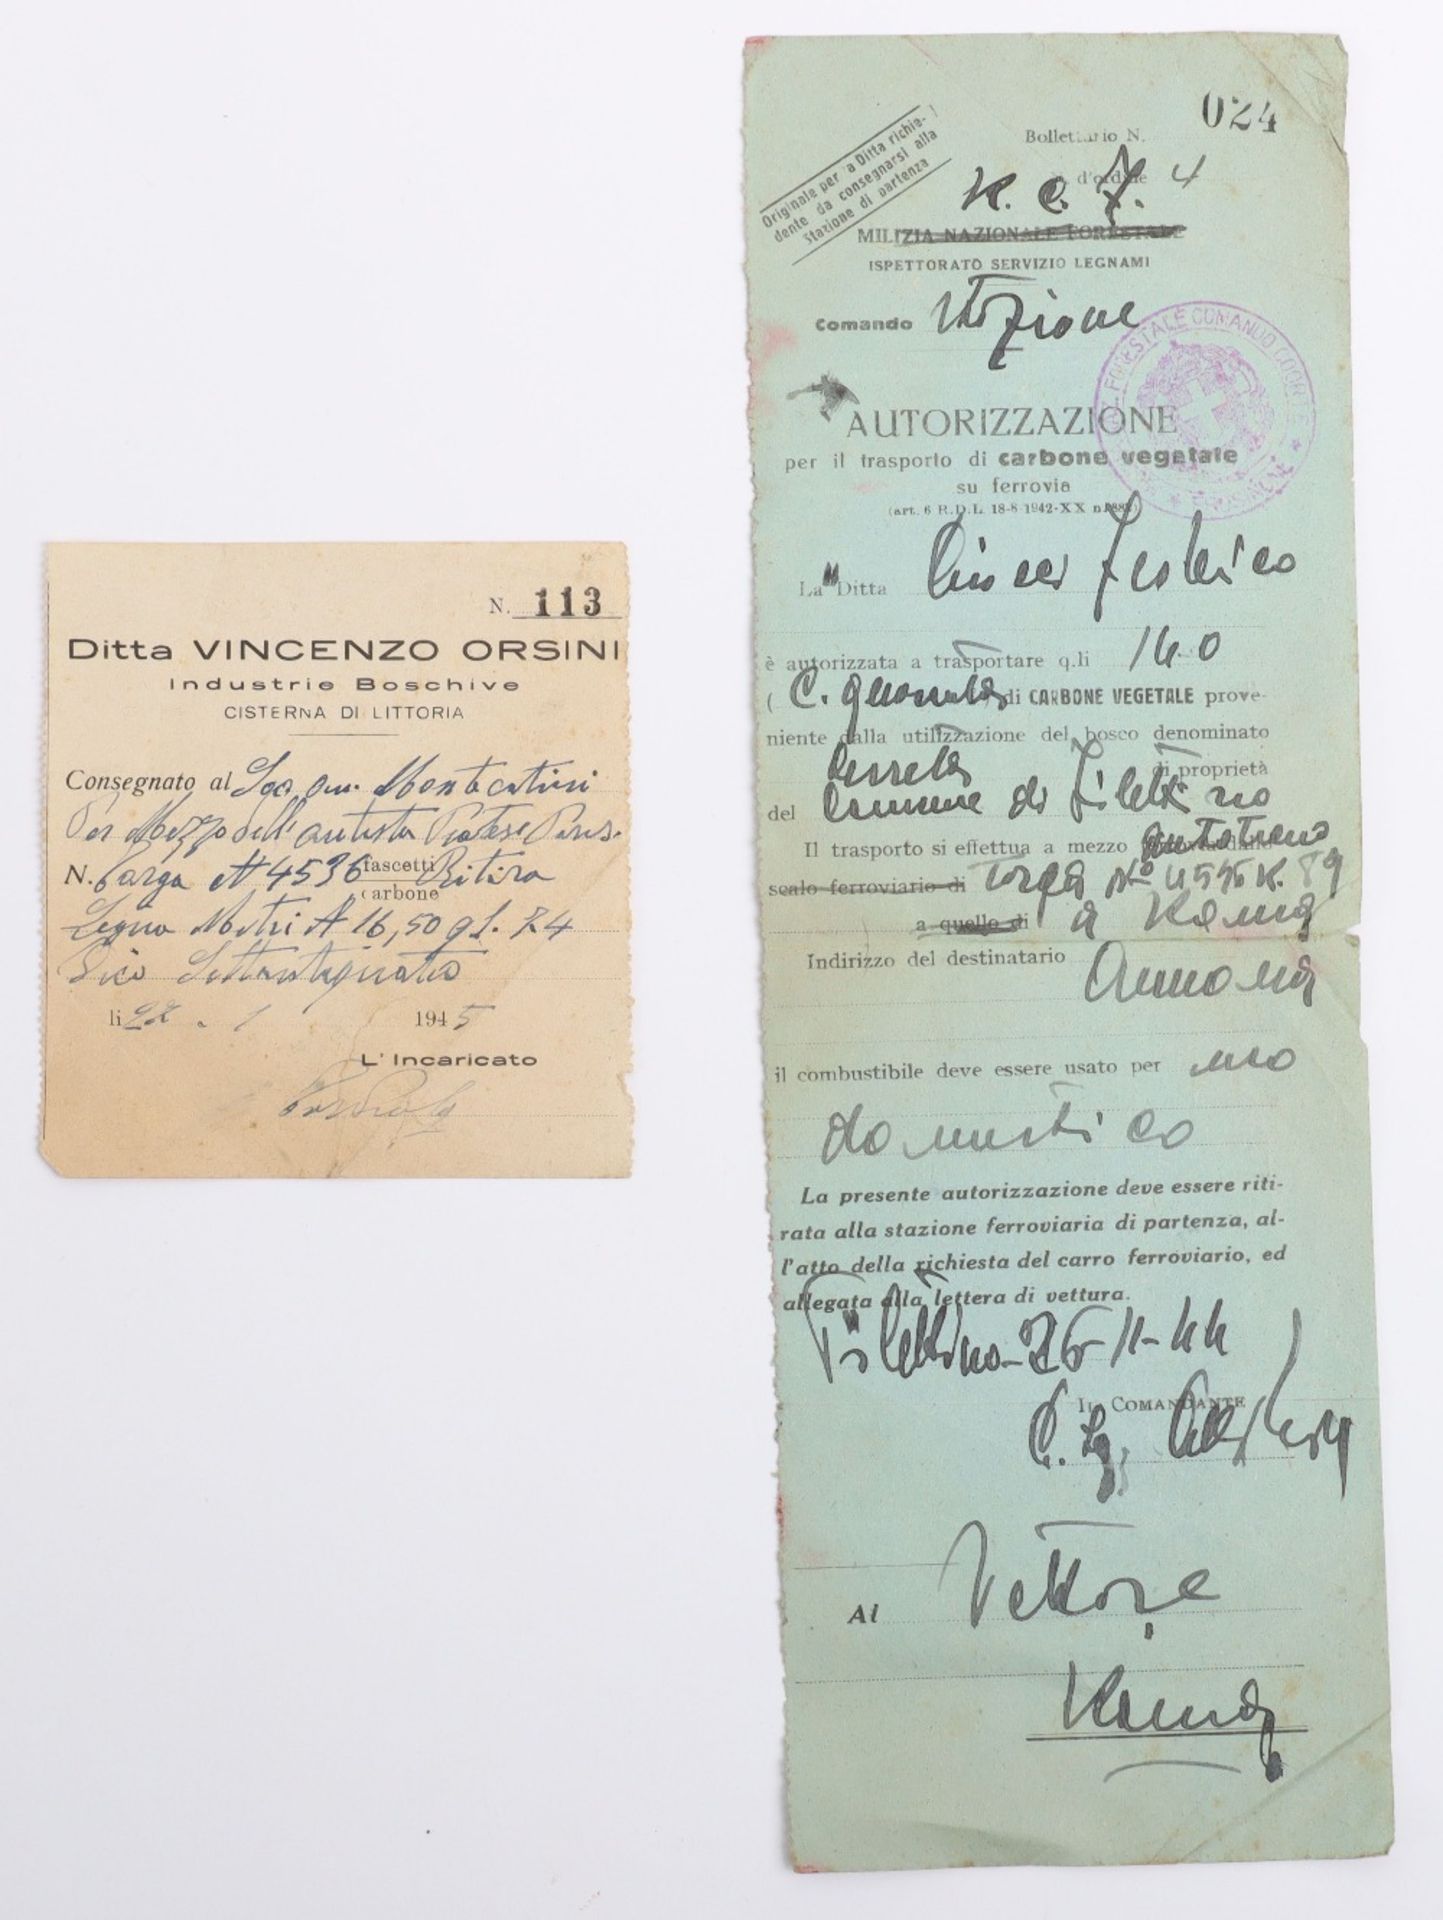 N. 113
Ditta VINCENZO ORSINI
Industrie Boschive
CISTERNA DI LITTORIA
Consegnato al Soc. An. Montecatini
Per Mezzo dell'autista
N. Targa N 4536 fascetti Ritira
carbone
Legna Metri 16,50 ql. 74
Dico
li 22 . 1 1945
L'Incaricato
024
Bollettario N.
d'ordine 4
Originale per la Ditta richie-
dente da consegnarsi alla
Stazione di partenza
MILIZIA NAZIONALE FORESTALE
ISPETTORATO SERVIZIO LEGNAMI
Comando Stazione
FORESTALE COMANDO COORTE
FROSINONE
AUTORIZZAZIONE
per il trasporto di carbone vegetale
su ferrovia
(art. 6 R.D.L. 18-8-1942-XX n.
La Ditta
è autorizzata a trasportare q.li 140
( C. quaranta di CARBONE VEGETALE prove-
niente dalla utilizzazione del bosco denominato
Cerreta di proprietà
del Comune di Filettino
Il trasporto si effettua a mezzo autotreno
scalo ferroviario di Targa No
a quello di a Roma
Indirizzo del destinatario
Annona
il combustibile deve essere usato per uso
domestico
La presente autorizzazione deve essere riti-
rata alla stazione ferroviaria di partenza, al-
l'atto della richiesta del carro ferroviario, ed
allegata alla lettera di vettura.
Filettino - 26-11-44
IL COMANDANTE
Al Vettore
Roma